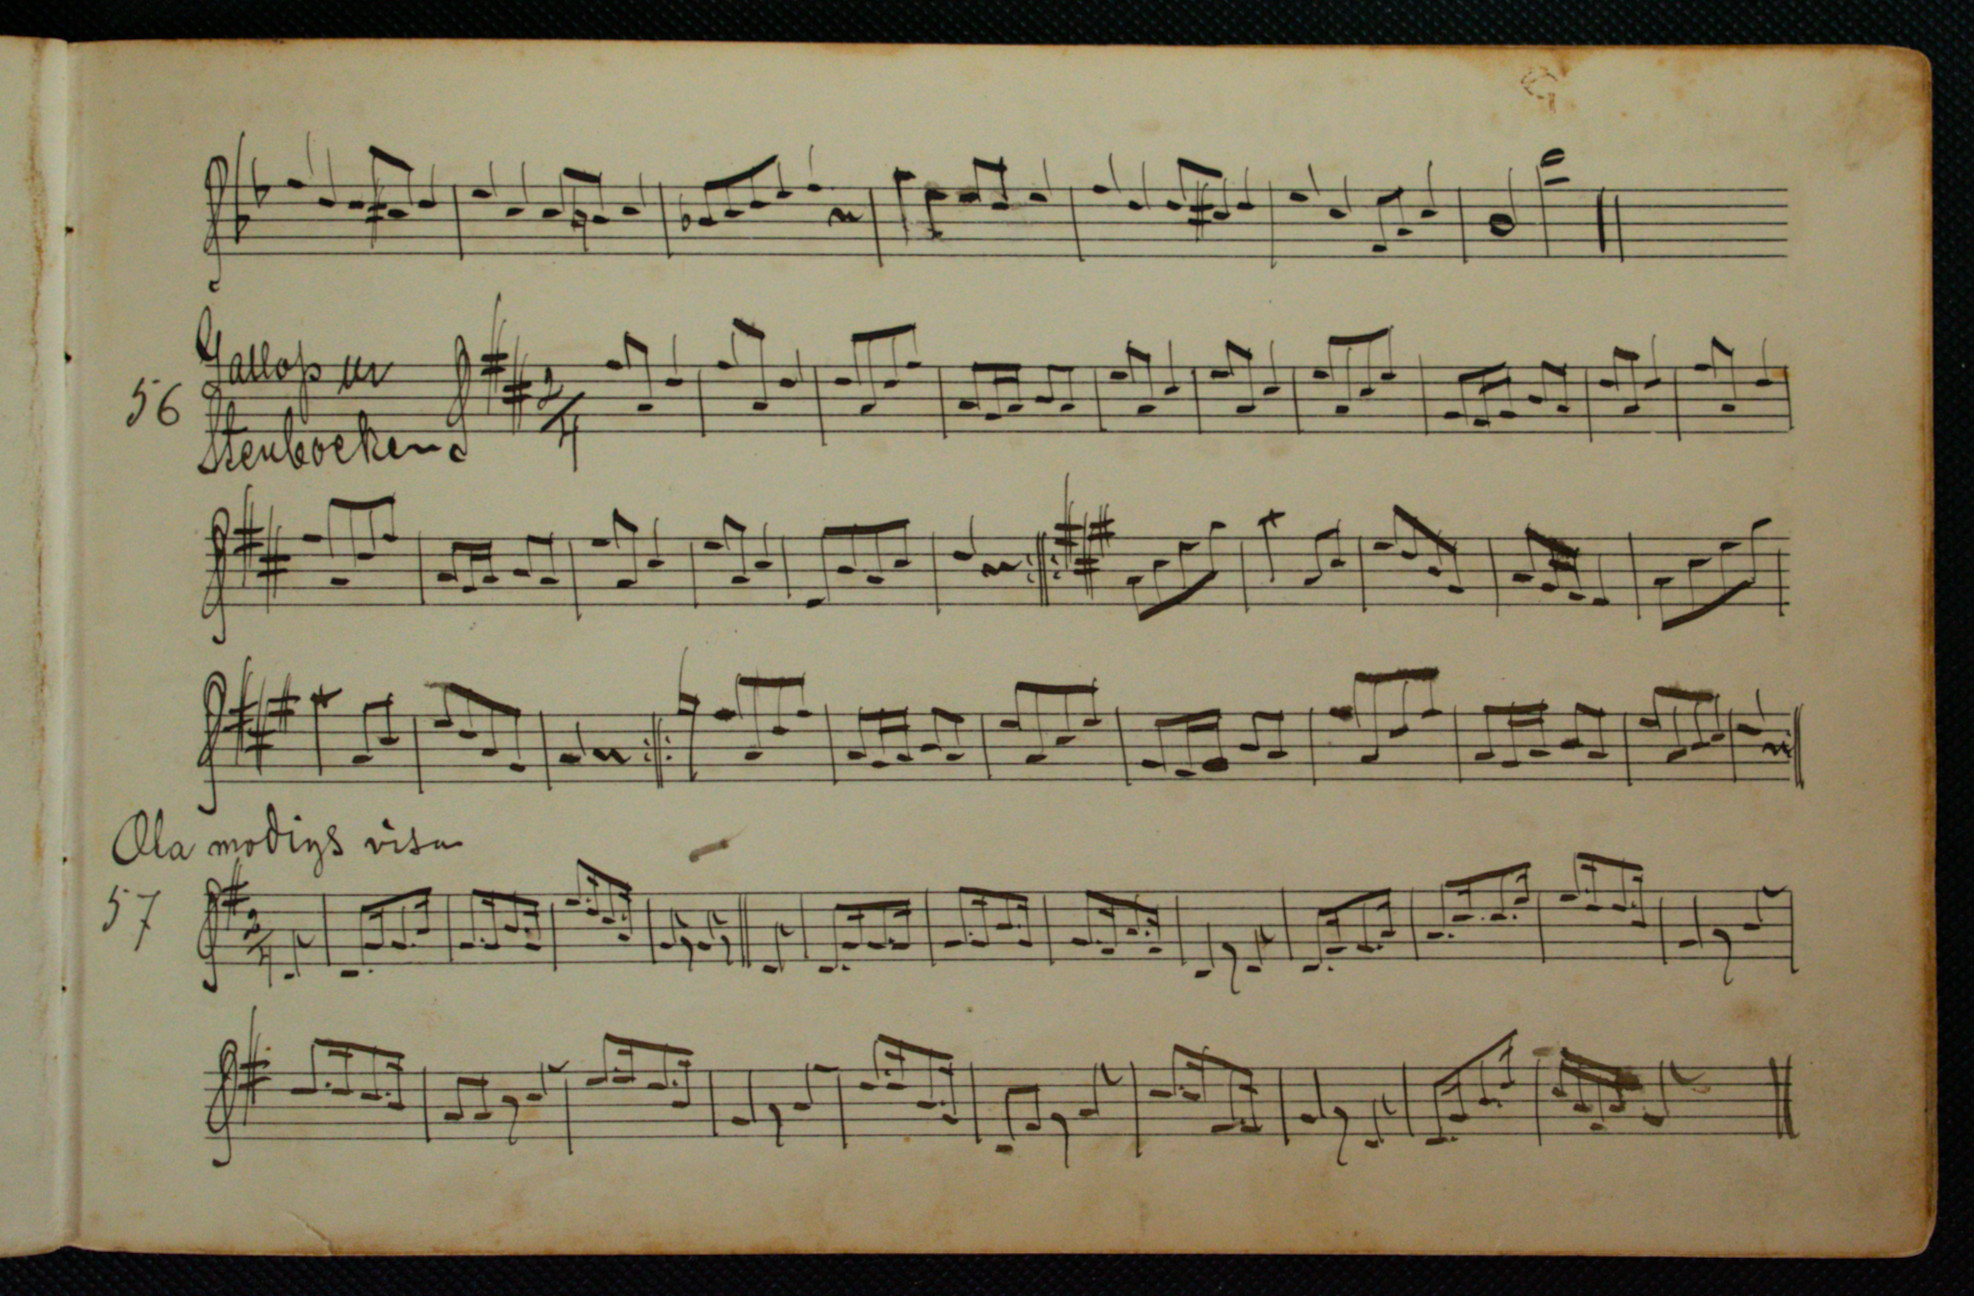 56
Gallop ur
Stenbocken
2/4
Ola modigs visa
57
2/4